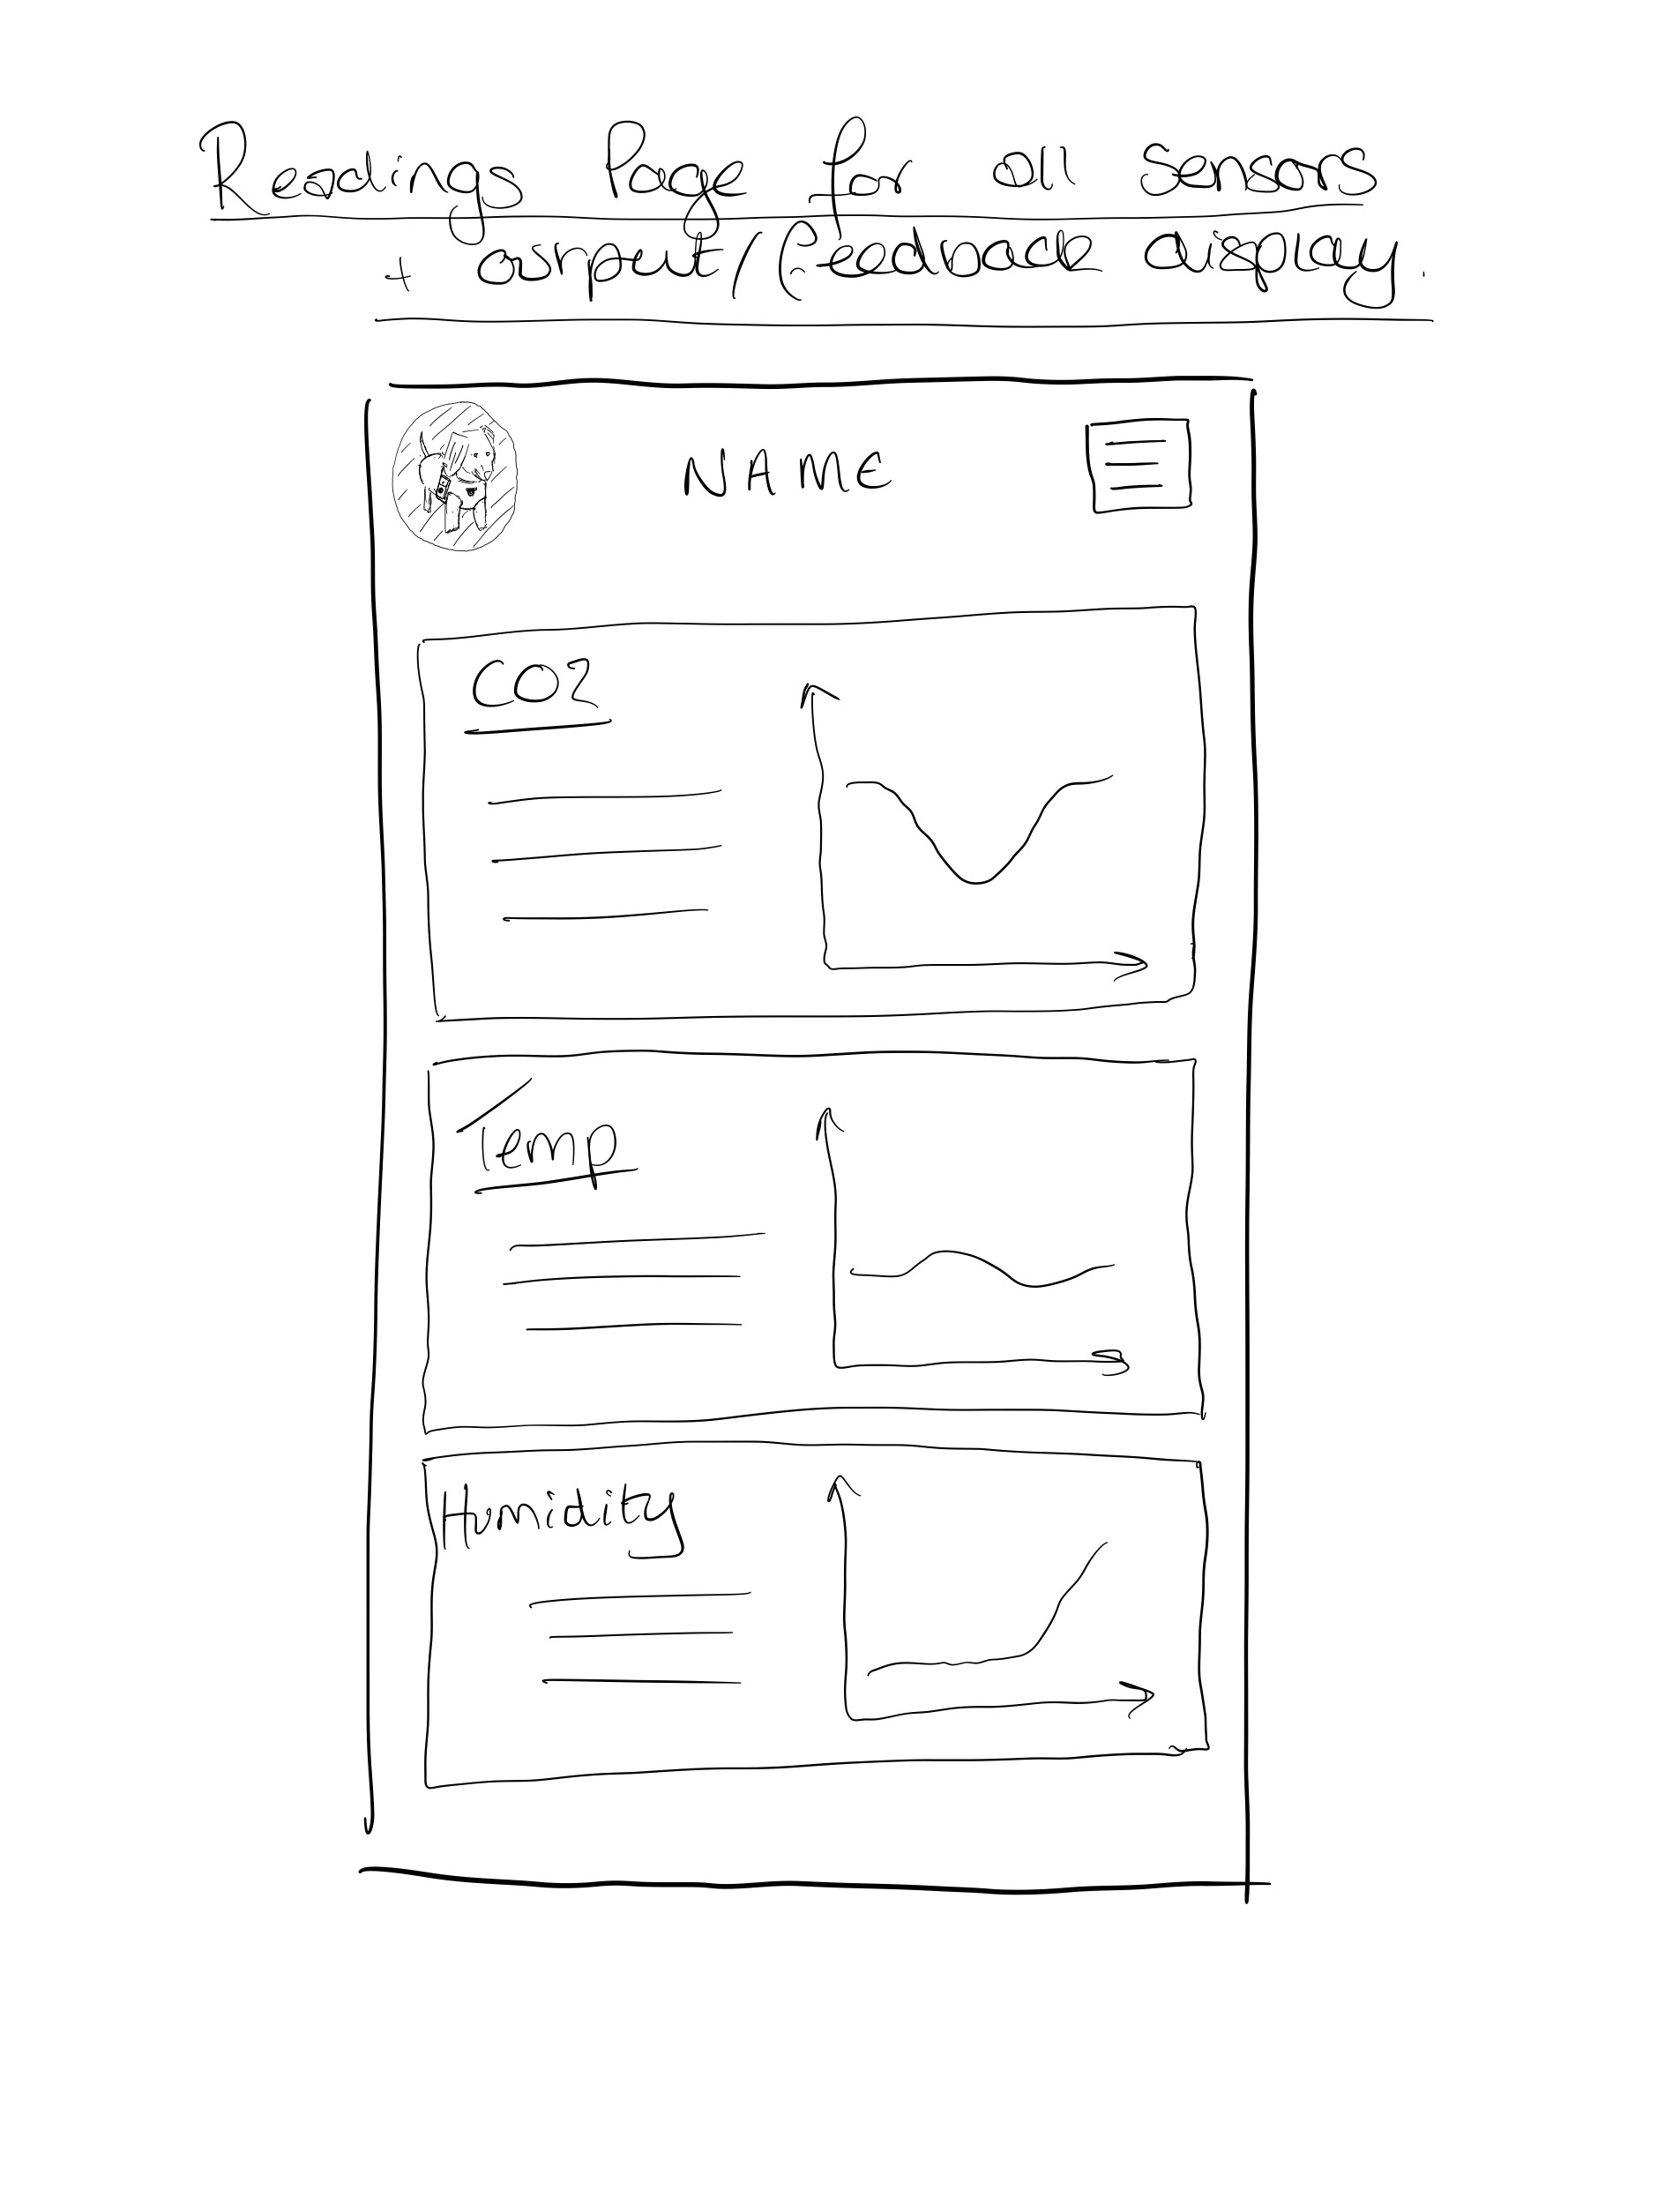 Readings Page for all sensors
+ output/feedback display.
NAME
CO2
Temp
Humidity